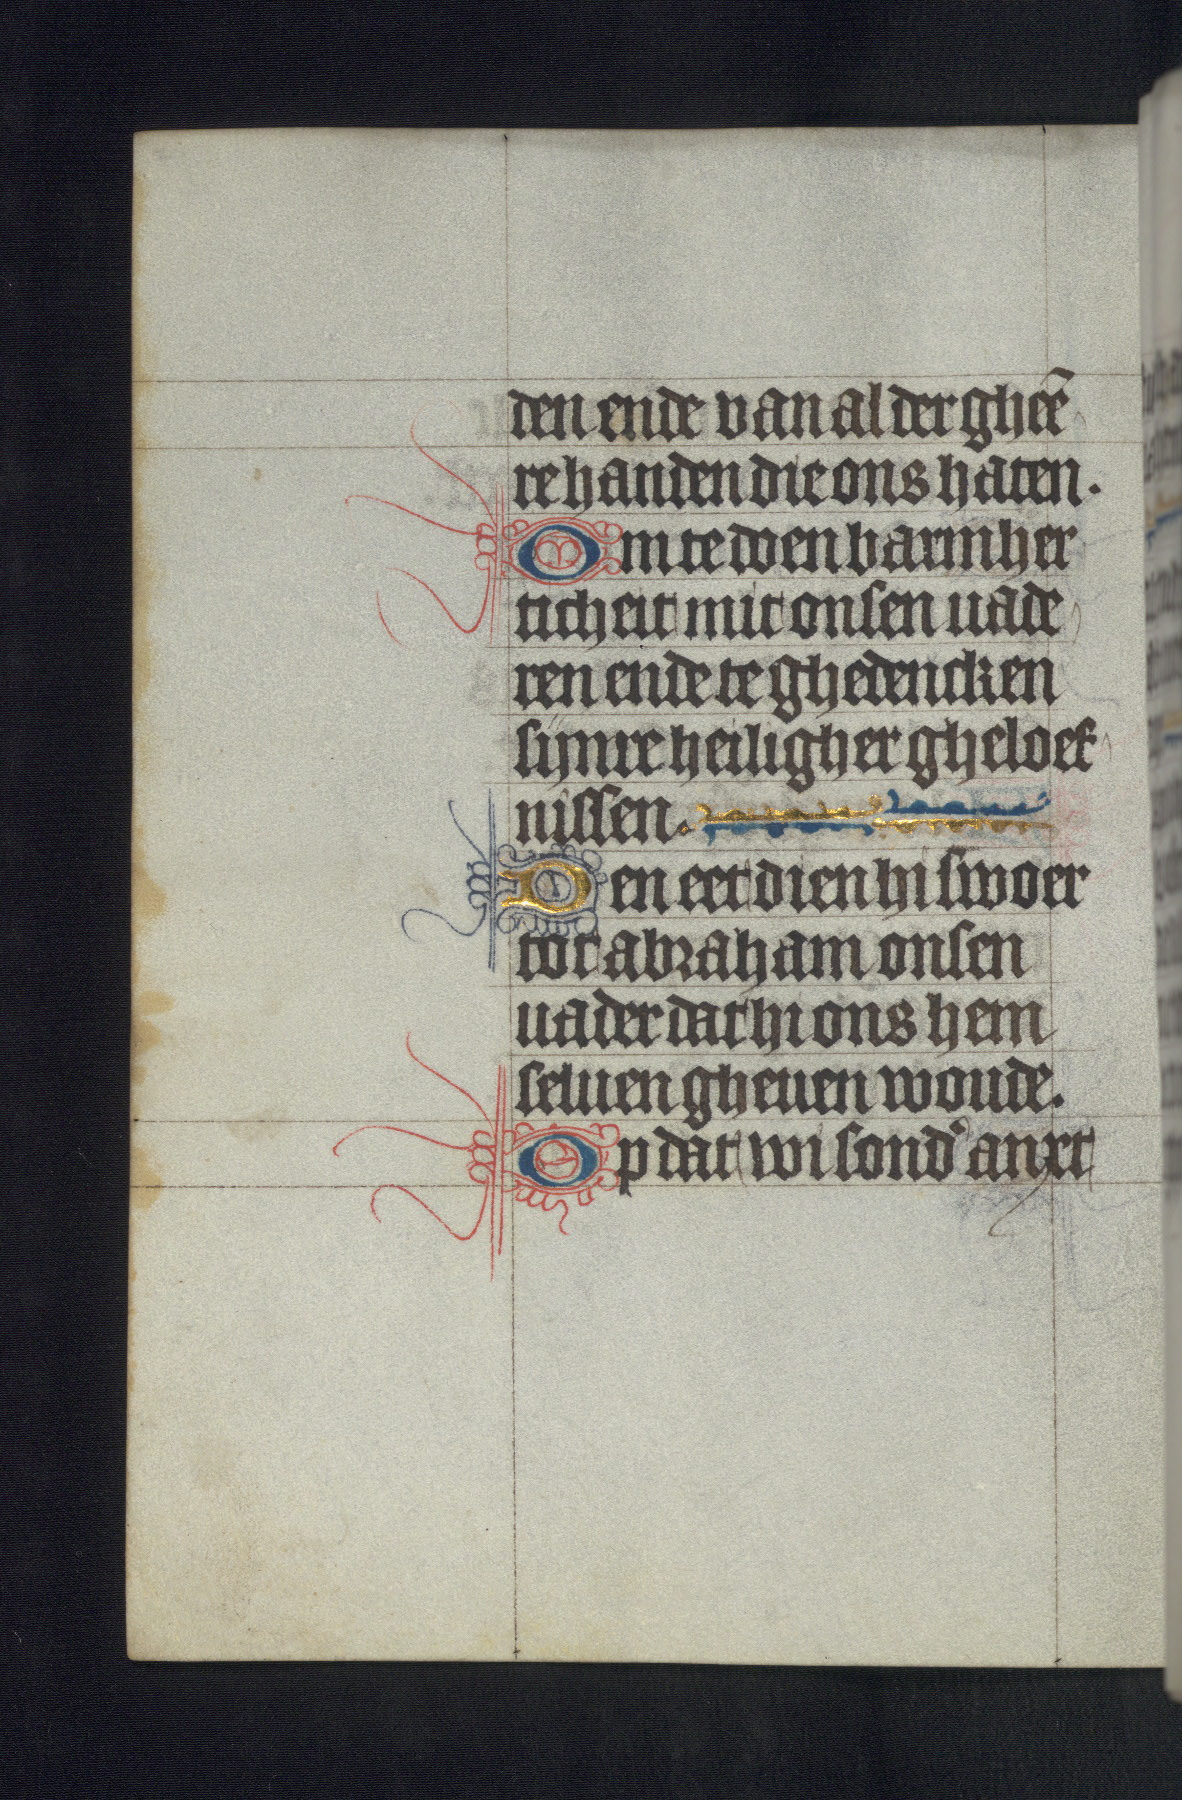 den ende van al der gheẽ
re handen die ons haten.
Om te doen barmher
ticheit mit onsen uade
ren ende te ghedencken
sijnre heiligher gheloef
nissen.
Den eet dien hi swoer
tot abraham onsen
uader dat hi ons hem
seluen gheuen woude.
Op dat wi sond' anxt